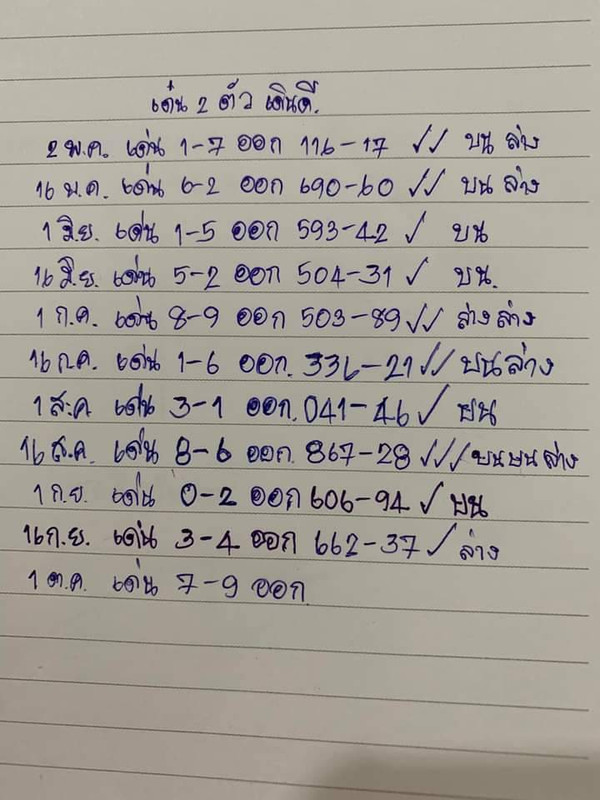 เด่น 2 ตัว เดินดี.
2 พ.ค. เด่น 1-7 ออก 116-17 ✓✓ บน ล่าง
16 ม.ค. เด่น 6-2 ออก 690-60 ✓✓ บน ล่าง
1 มิย. เด่น 1-5 ออก 593-42 ✓ บน
16 มิย. เด่น 5-2 ออก 504-31 ✓ บน.
1 ก.ค. เด่น 8-9 ออก 503-89 ✓✓ ล่าง ล่าง
16 กค. เด่น 1-6 ออก. 336-21 ✓✓ บน ล่าง
1 ส.ค เด่น 3-1 ออก. 041-46 ✓ บน
16 ส.ค. เด่น 8-6 ออก. 867-28 ✓✓✓ บน บน ล่าง
1 ก.ย. เด่น 0-2 ออก 606-94 ✓ บน
16 ก.ย. เด่น 3-4 ออก 662-37 ✓ ล่าง
1 ต.ค. เด่น 7-9 ออก.